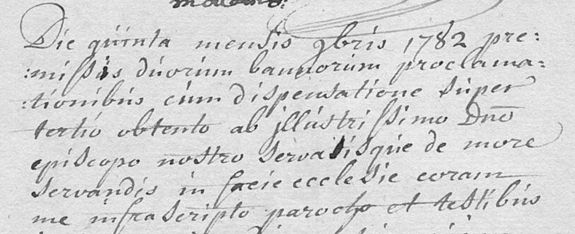 Die quinta mensis 9bris 1782 pre:
:missis duorum bannorum proclama=
:tionibus cum dispensatione super
tertio obtento ab illustrissimo Dno
episcopo nostro servatisque de more
servandis in facie ecclesie coram
me infrascripto parocho et testibus